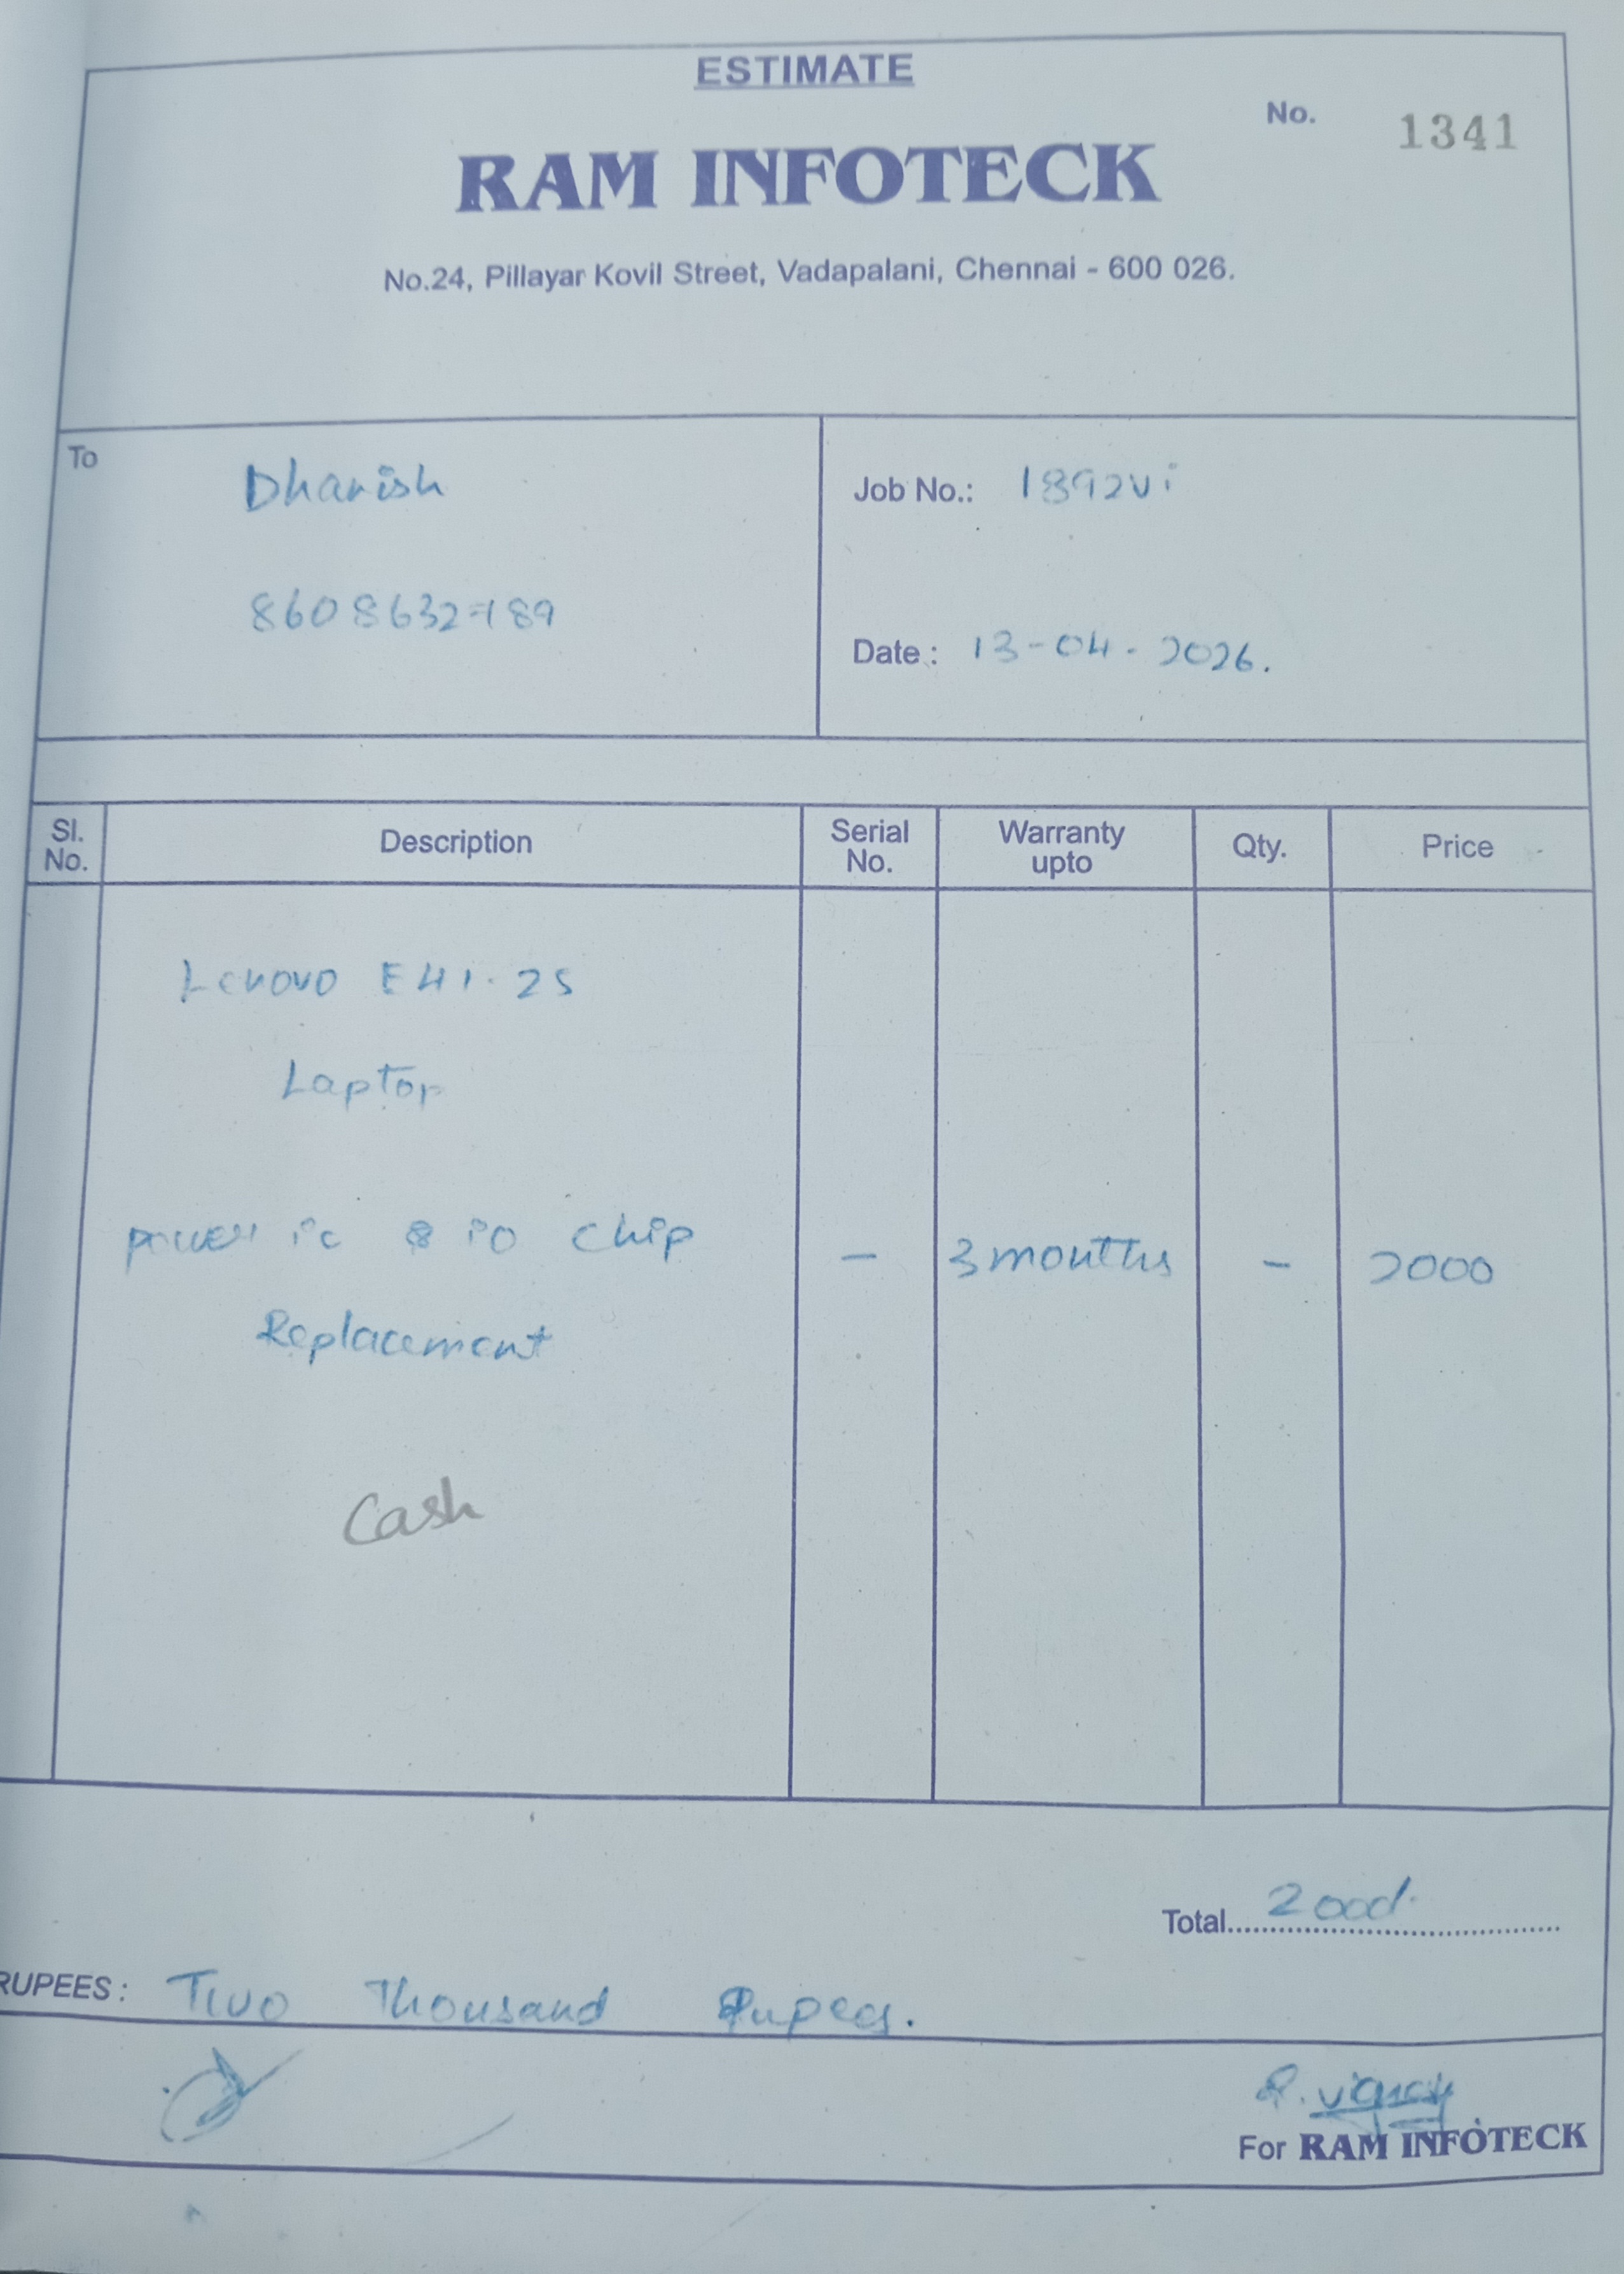 ESTIMATE
No. 1341
RAM INFOTECK
No.24, Pillayar Kovil Street, Vadapalani, Chennai - 600 026.
To
Dhanish
8608632789
Job No.: 1892vi
Date : 13-04-2026.
Sl. No. Description Serial No. Warranty upto Qty. Price
Lenovo E41-25
Laptop
power ic & io chip - 3 months - 2000
Replacement
Cash
Total 2000/-
RUPEES : Two Thousand Rupees.
For RAM INFOTECK